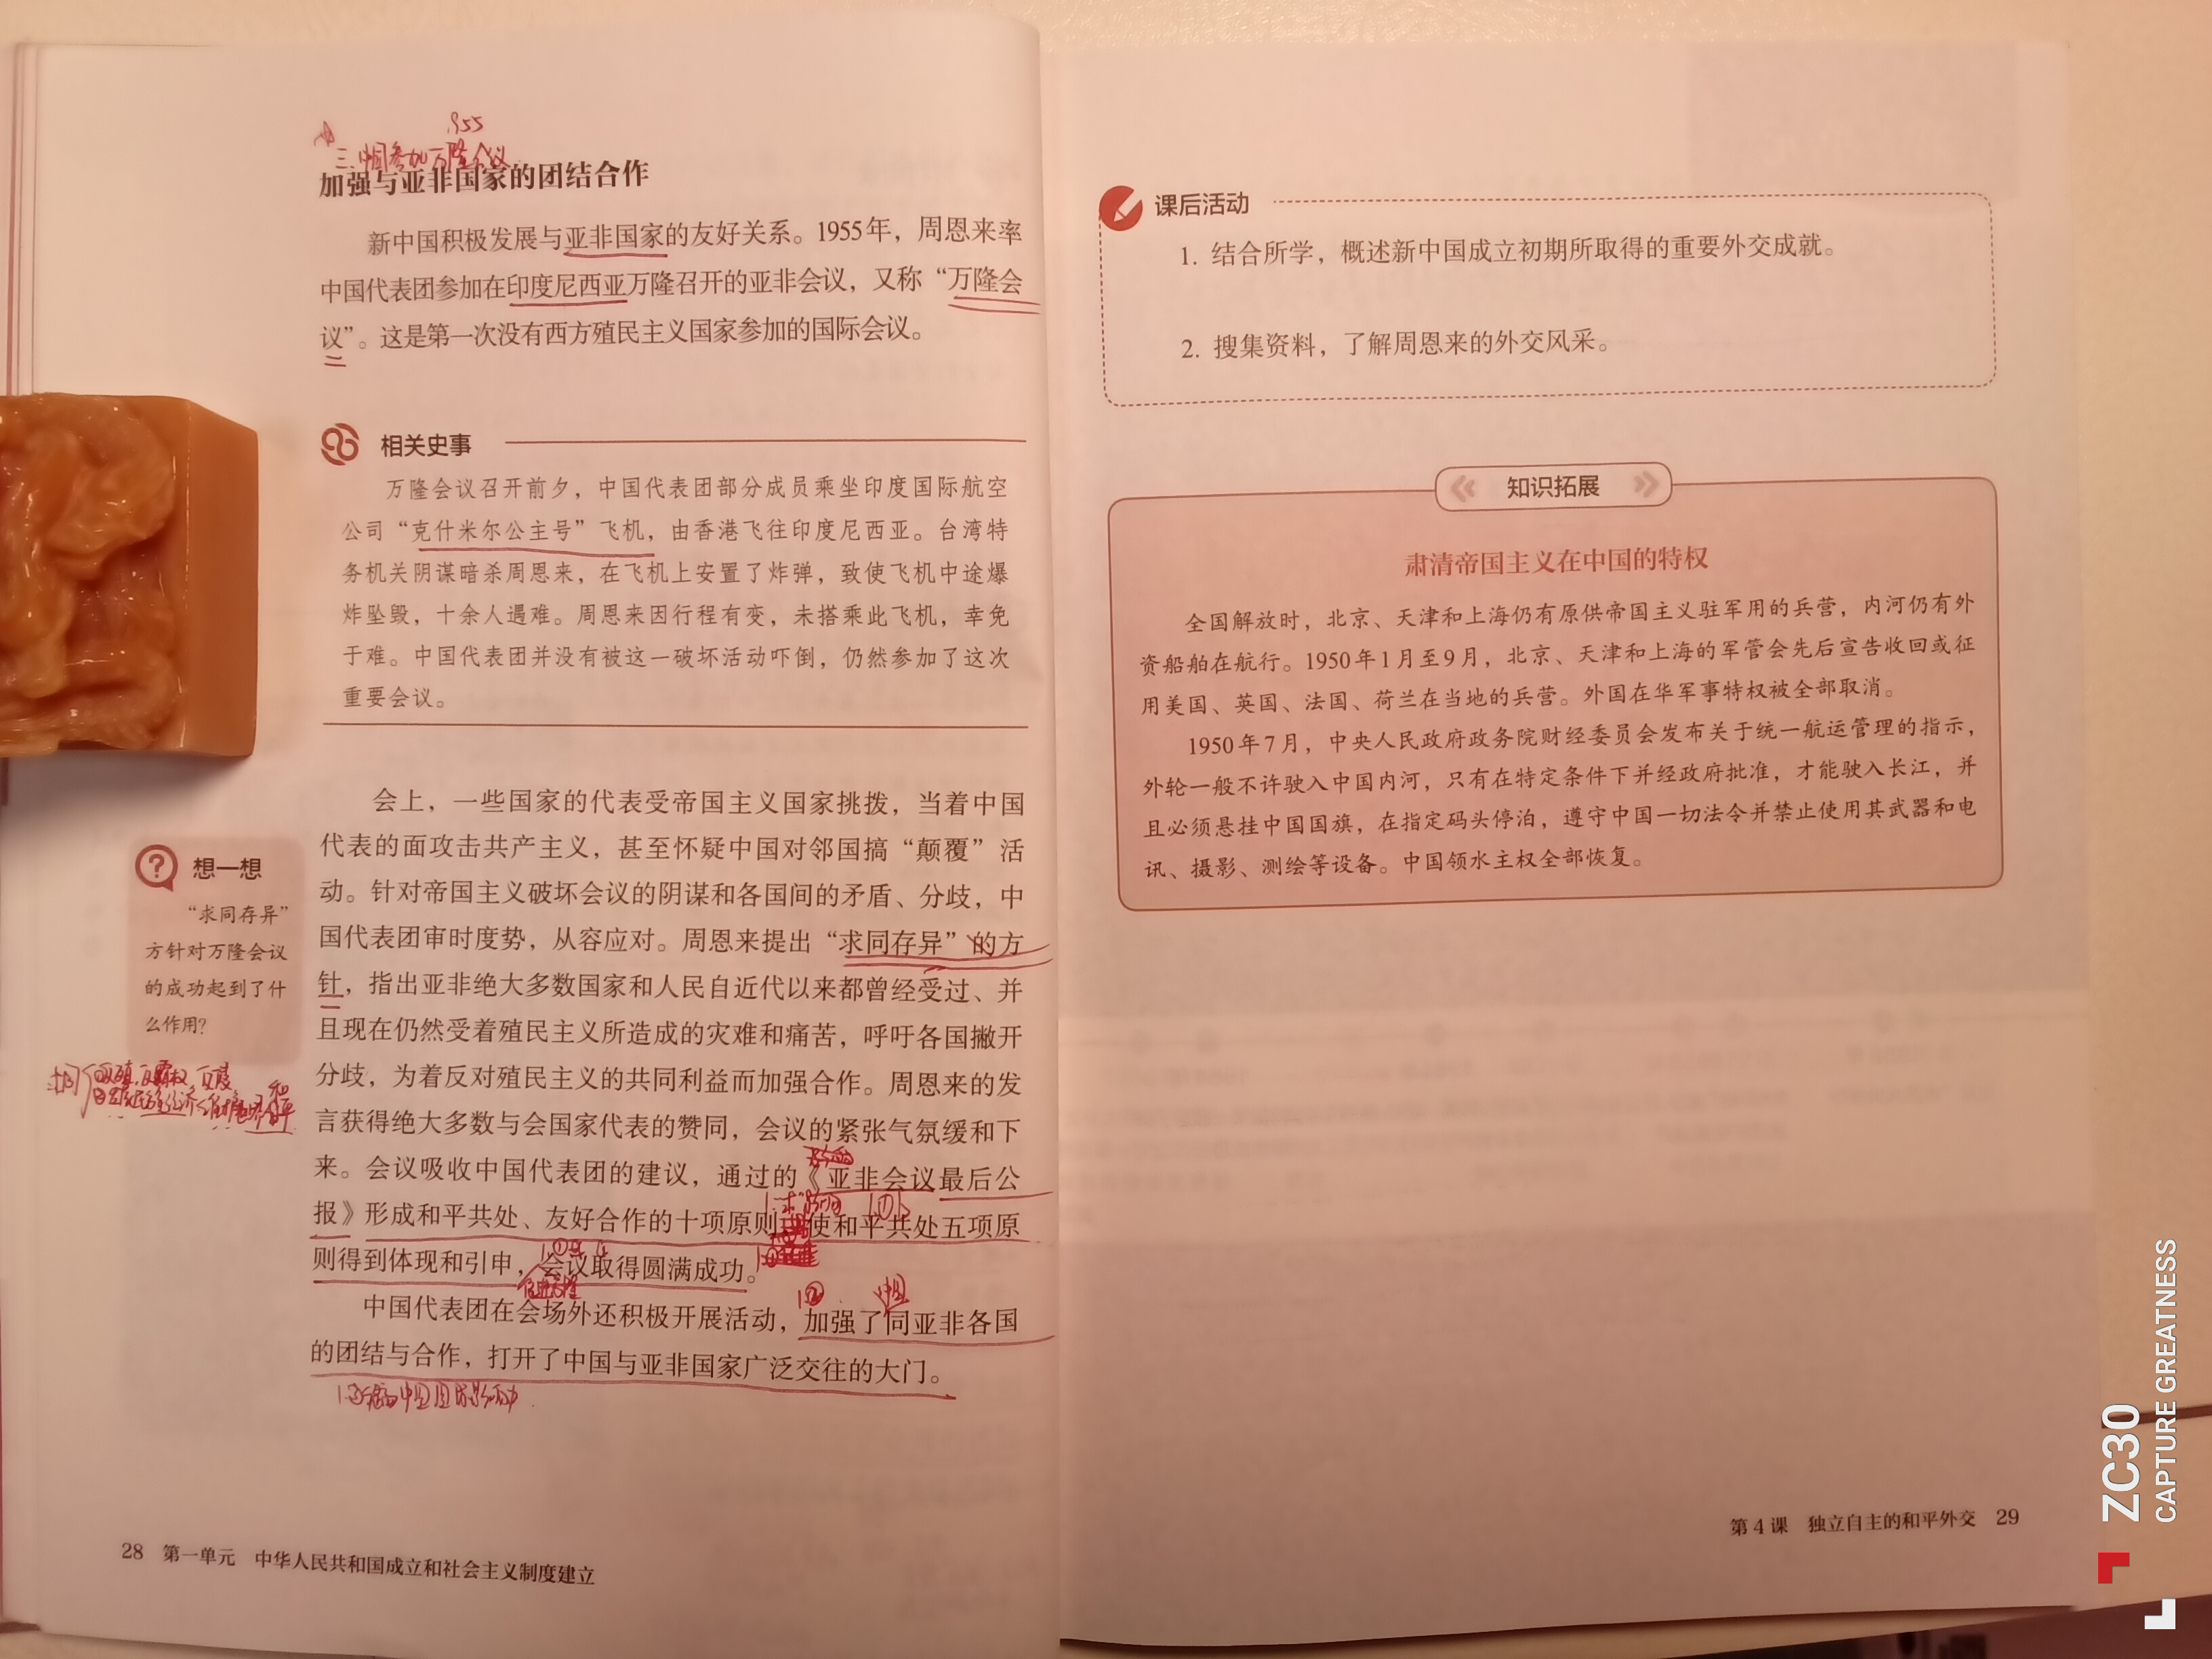 955
三.中国参加万隆会议
加强与亚非国家的团结合作
新中国积极发展与亚非国家的友好关系。1955年，周恩来率
中国代表团参加在印度尼西亚万隆召开的亚非会议，又称“万隆会
议”。这是第一次没有西方殖民主义国家参加的国际会议。
相关史事
万隆会议召开前夕，中国代表团部分成员乘坐印度国际航空
公司“克什米尔公主号”飞机，由香港飞往印度尼西亚。台湾特
务机关阴谋暗杀周恩来，在飞机上安置了炸弹，致使飞机中途爆
炸坠毁，十余人遇难。周恩来因行程有变，未搭乘此飞机，幸免
于难。中国代表团并没有被这一破坏活动吓倒，仍然参加了这次
重要会议。
会上，一些国家的代表受帝国主义国家挑拨，当着中国
代表的面攻击共产主义，甚至怀疑中国对邻国搞“颠覆”活
动。针对帝国主义破坏会议的阴谋和各国间的矛盾、分歧，中
国代表团审时度势，从容应对。周恩来提出“求同存异”的方
针，指出亚非绝大多数国家和人民自近代以来都曾经受过、并
且现在仍然受着殖民主义所造成的灾难和痛苦，呼吁各国撇开
分歧，为着反对殖民主义的共同利益而加强合作。周恩来的发
言获得绝大多数与会国家代表的赞同，会议的紧张气氛缓和下
来。会议吸收中国代表团的建议，通过的《亚非会议最后公
报》形成和平共处、友好合作的十项原则，使和平共处五项原
则得到体现和引申，会议取得圆满成功。
中国
中国代表团在会场外还积极开展活动，加强了同亚非各国
的团结与合作，打开了中国与亚非国家广泛交往的大门。
想一想
“求同存异”
方针对万隆会议
的成功起到了什
么作用？
28 第一单元 中华人民共和国成立和社会主义制度建立
课后活动
1. 结合所学，概述新中国成立初期所取得的重要外交成就。
2. 搜集资料，了解周恩来的外交风采。
知识拓展
肃清帝国主义在中国的特权
全国解放时，北京、天津和上海仍有原供帝国主义驻军用的兵营，内河仍有外
资船舶在航行。1950年1月至9月，北京、天津和上海的军管会先后宣告收回或征
用美国、英国、法国、荷兰在当地的兵营。外国在华军事特权被全部取消。
1950年7月，中央人民政府政务院财经委员会发布关于统一航运管理的指示，
外轮一般不许驶入中国内河，只有在特定条件下并经政府批准，才能驶入长江，并
且必须悬挂中国国旗，在指定码头停泊，遵守中国一切法令并禁止使用其武器和电
讯、摄影、测绘等设备。中国领水主权全部恢复。
第4课 独立自主的和平外交 29
ZC30
CAPTURE GREATNESS